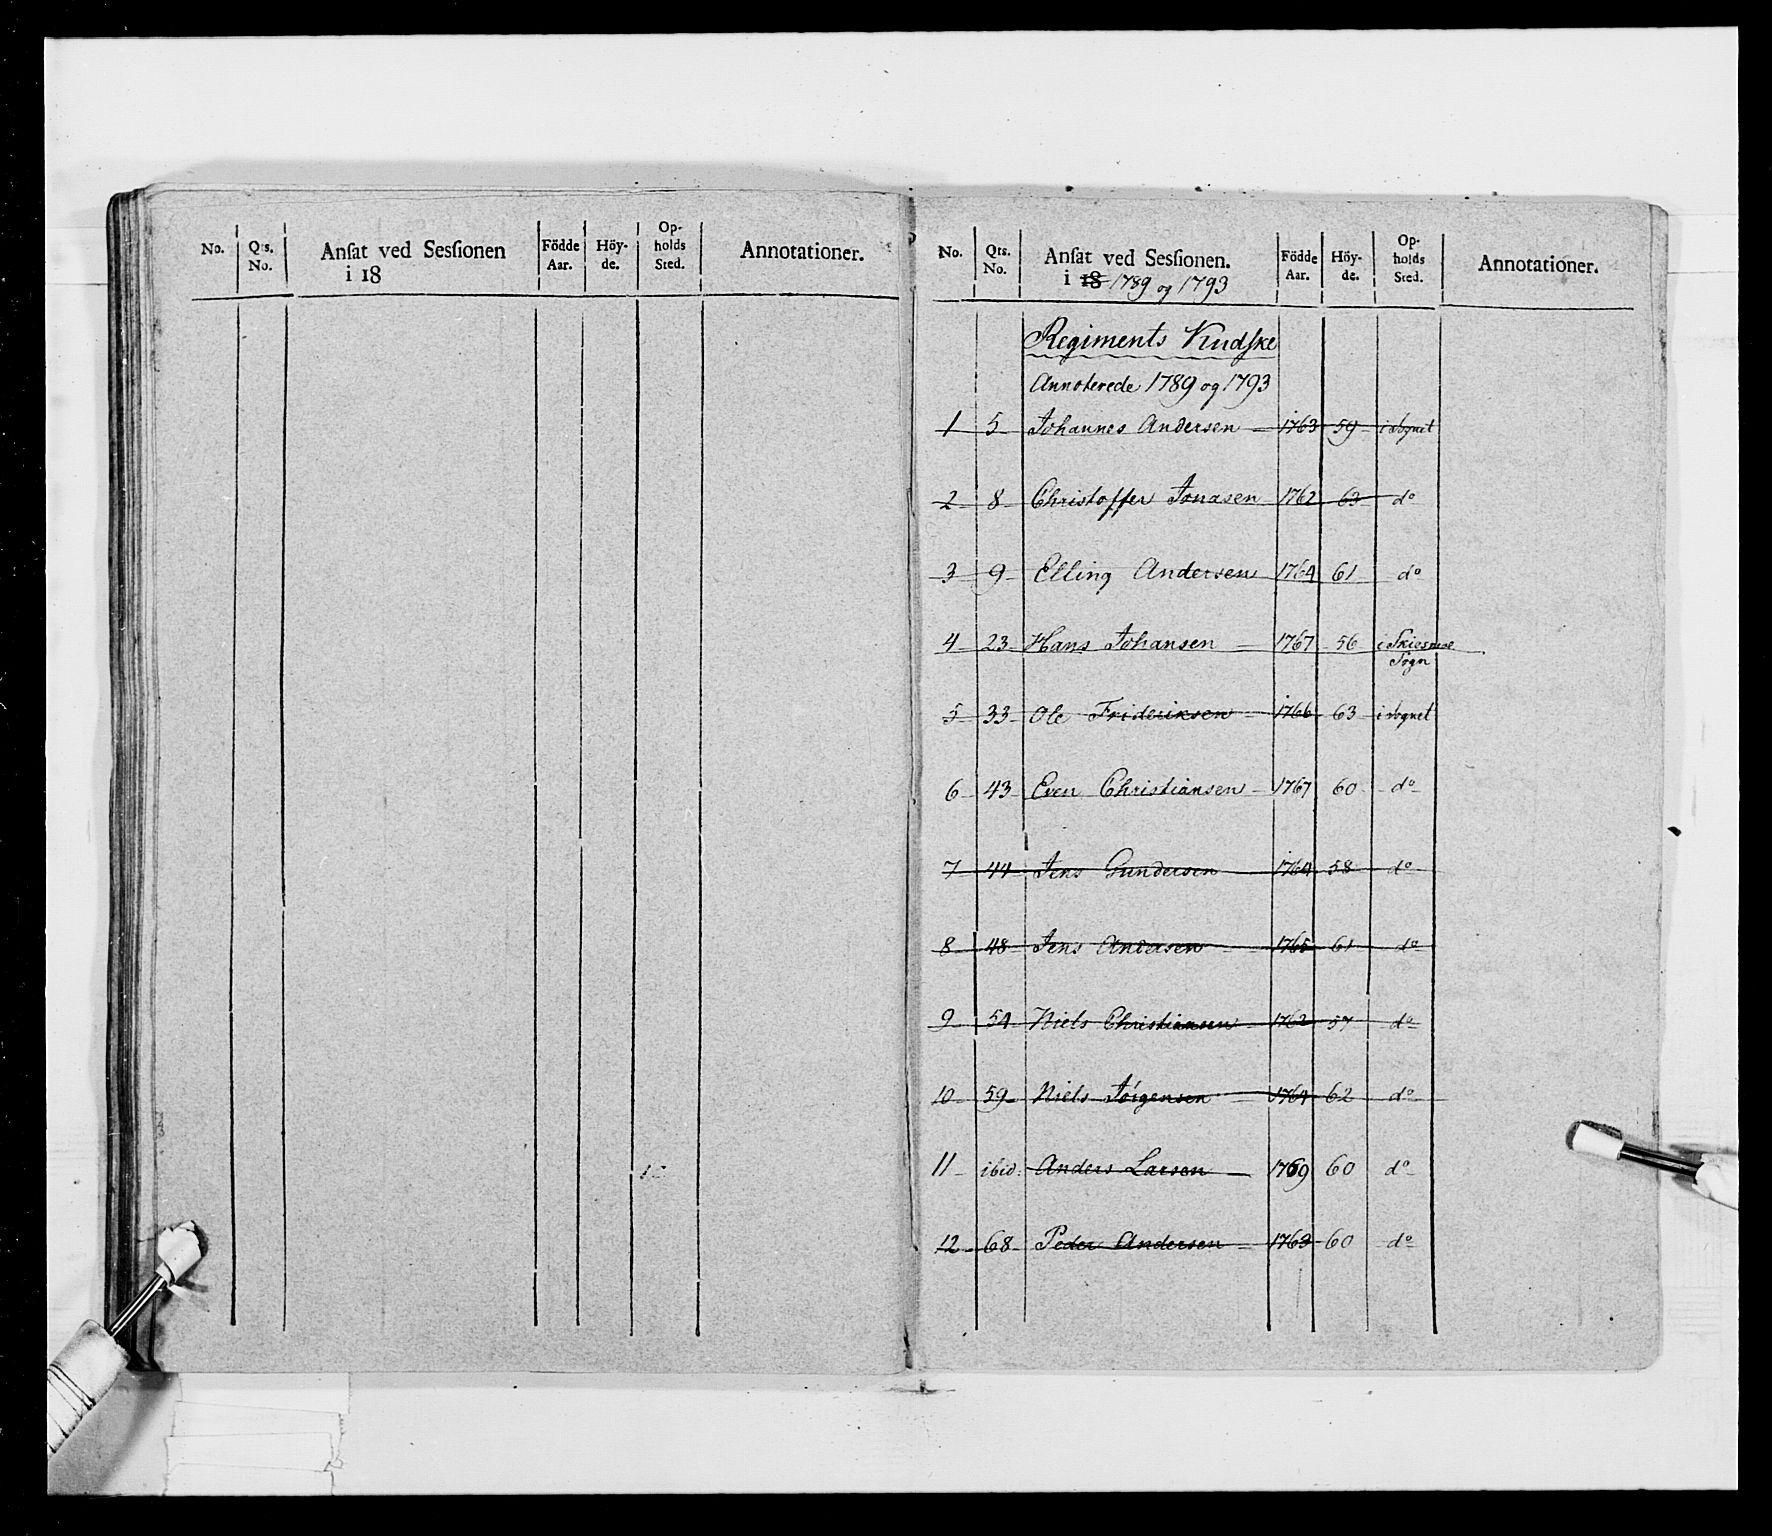 No.
Qts. No.
Anſat ved Sesſionen i 18
Födde Aar.
Höy-de.
Op-holds Sted.
Annotationer.
No.
Qts. No.
Anſat ved Sesſionen. i 18 1789 og 1793
Födde Aar.
Höy-de.
Op-holds Sted.
Annotationer.
Regiments Kudſke
Annoterede 1789 og 1793
1 5 Johannes Andersen 1763 59 i Sognet
2 8 Christoffer Jonasen 1762 63 do
3 9 Elling Andersen 1764 61 do
4 23 Hans Johansen 1767 56 i Sogn
5 33 Ole Frideriksen 1766 63 i Sognet
6 43 Even Christiansen 1767 60 do
7 44 Jens Gundersen 1764 58 do
8 48 Jens Andersen 1765 61 do
9 54 Niels Christiansen 1762 57 do
10 59 Niels Jörgensen 1764 62 do
11 ibid: Anders Larsen 1769 60 do
12 68 Peder Andersen 1763 60 do